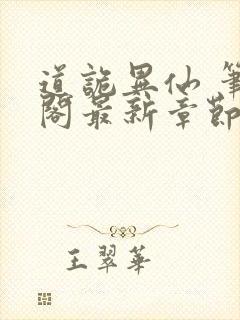 道詭異仙 筆
閣最新章節
王翠華